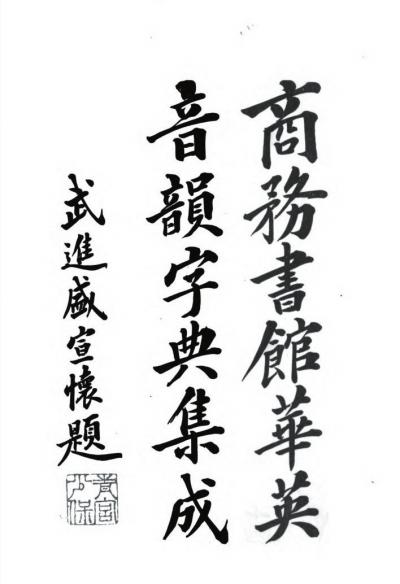 商務書館華英
音韻字典集成
武進盛宣懷題
青宮少保